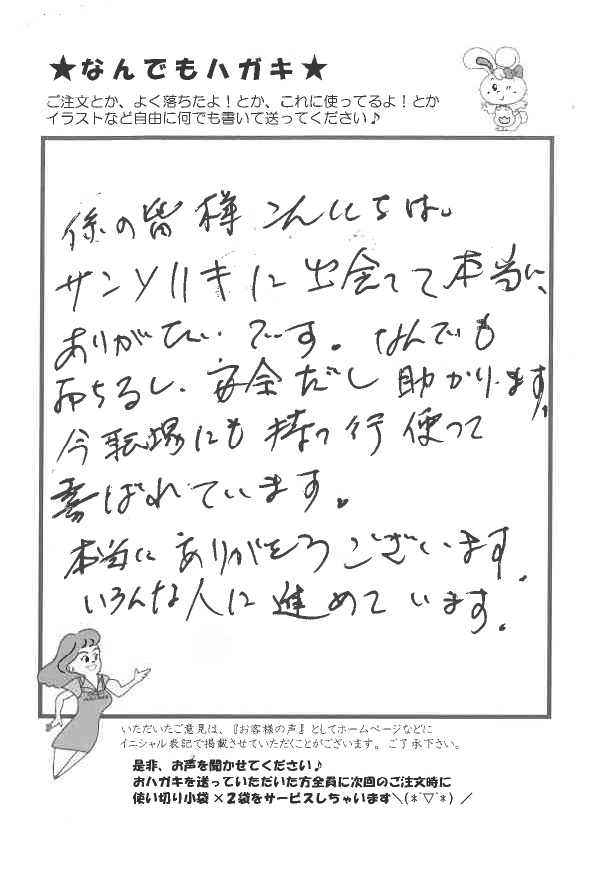 ★なんでもハガキ★
ご注文とか、よく落ちたよ！とか、これに使ってるよ！とか
イラストなど自由に何でも書いて送ってください♪
係の皆様 こんにちは。
サンソリキに出会えて本当に、
ありがたい。です。なんでも
落ちるし、安全だし 助かります。
今 職場にも 持って行 使って
喜ばれています。
本当に ありがとうございます。
いろんな人に 進めています。
いただいたご意見は、『お客様の声』としてホームページなどに
イニシャル表記で掲載させていただくことがございます。ご了承下さい。
是非、お声を聞かせてください♪
おハガキを送っていただいた方全員に次回のご注文時に
使い切り小袋×２袋をサービスしちゃいます＼(*´▽`*)／